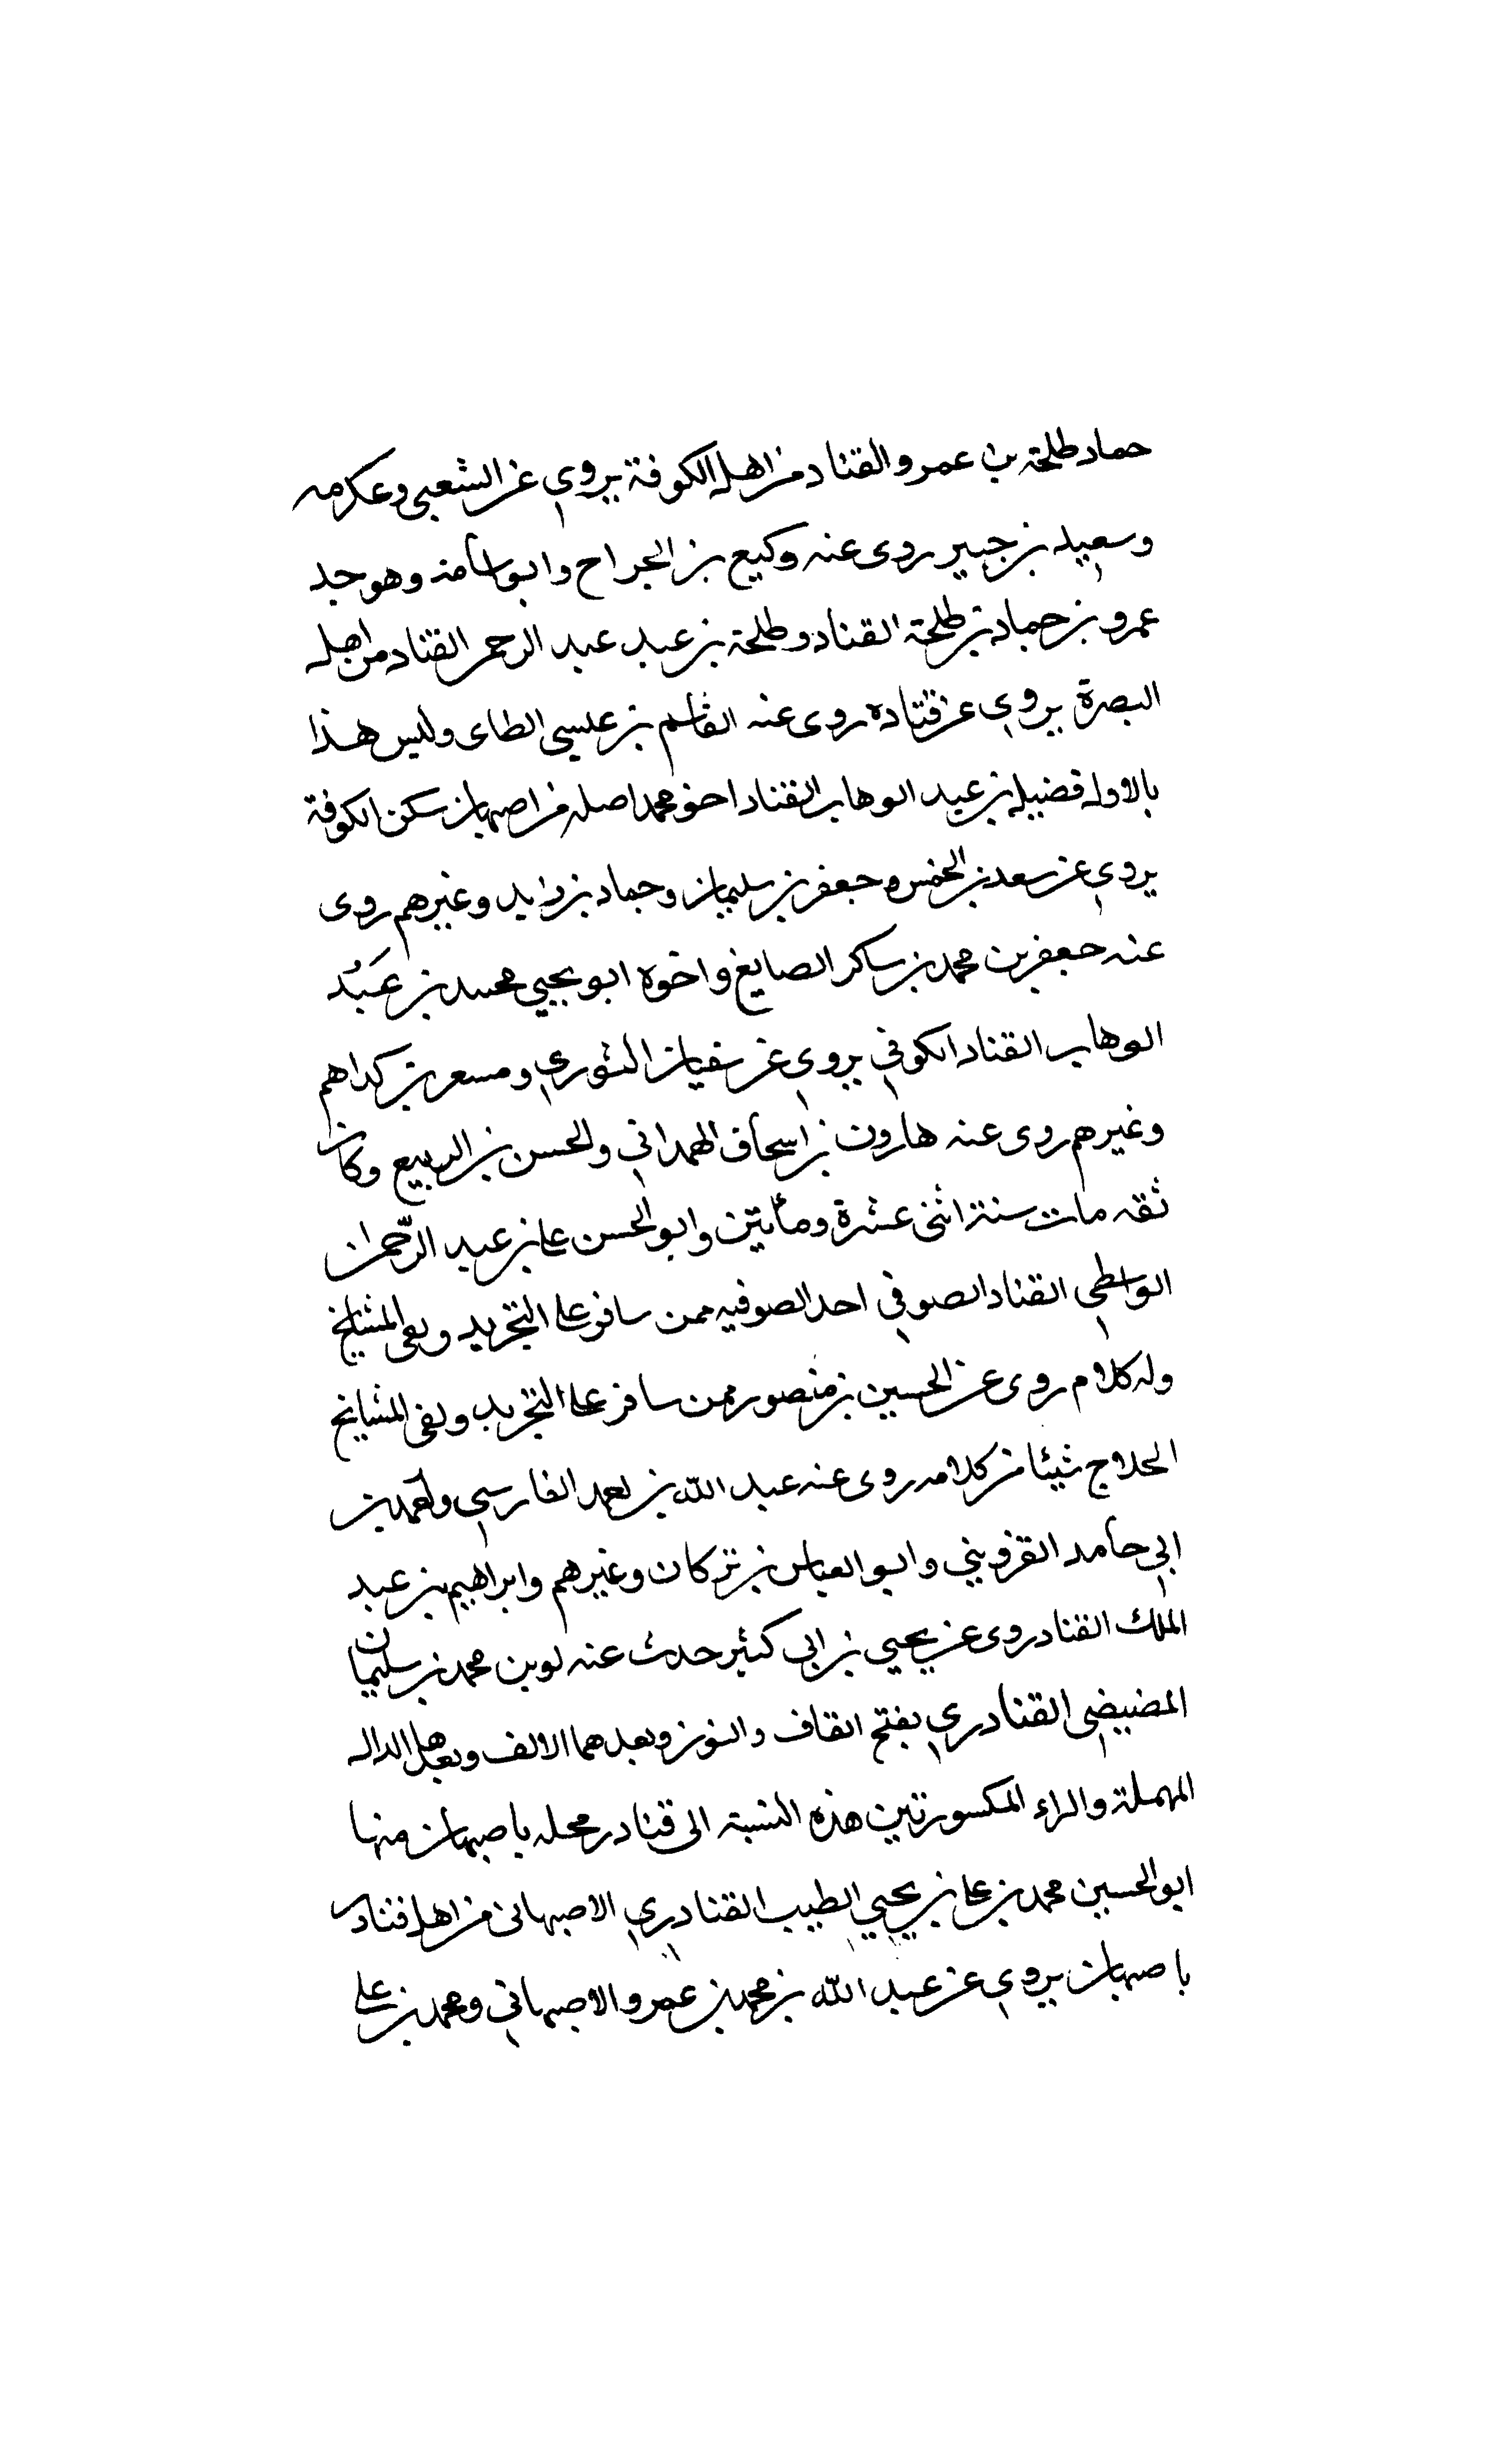 حماد طلحة بن عمرو القناد من اهل الكوفة يروي عن الشعبي وعكرمه
وسعيد بن جبير روى عنه وكيع بن الجراح وابو اسامة وهو جد
عمرو بن حماد بن طلحة القناد وطلحة بن عبد عبد الرحمن القناد من اهل
البصرة يروي عن قتاده روى عنه القاسم بن عيسى الطاى وليس هذا
بالاول فضيل بن عبد الوهاب القناد اخو محمد اصله من اصبهان سكن الكوفة
يروي عن سعد بن الخمس وجعفر بن سليمان وحماد بن زايد وغيرهم روى
عنه جعفر بن محمد بن ساكر الصايغ واخوه ابو يحيي محمد بن عَبْد
الوهاب القناد الكوفي يروي عن سفيان الثوري ومسعر بن كداهم
وغيرهم روى عنه هارون بن اسحاق الهمداني والحسن بن الربيع وكان
ثقه مات سنة اثنى عشرة ومائتين وابو الحسن على بن عبد الرّحمان
الواسطي القناد الصوفي احد الصوفيه ممن سافر على التجريد ولقى المشايخ
وله كلام روى عن الحسين بن منصور ممن سافر على التجريد ولقى المشايخ
الحلاج شيئا من كلامه روى عنه عبد الله بن احمد الفارسي واحمد بن
ابي حامد القزويني وابو العباس بن تركان وغيرهم وابراهيم بن عبد
الملك القناد روى عن يحيي بن ابى كثير حدث عنه لوين محمد بن سليمان
المضيضي القنادري بفتح القاف والنون وبعدهما الالف وبعدها الدال
المهملة والراء المكسورتين هذه النسبة الى قنادر محله باصبهان منها
ابو الحسين محمد بن على بن يحيي الطيب القنادري الاصبهانى من اهل قنادر
باصبهان يروي عن عبد الله بن محمد بن عمرو الاصبهاني ومحمد بن على